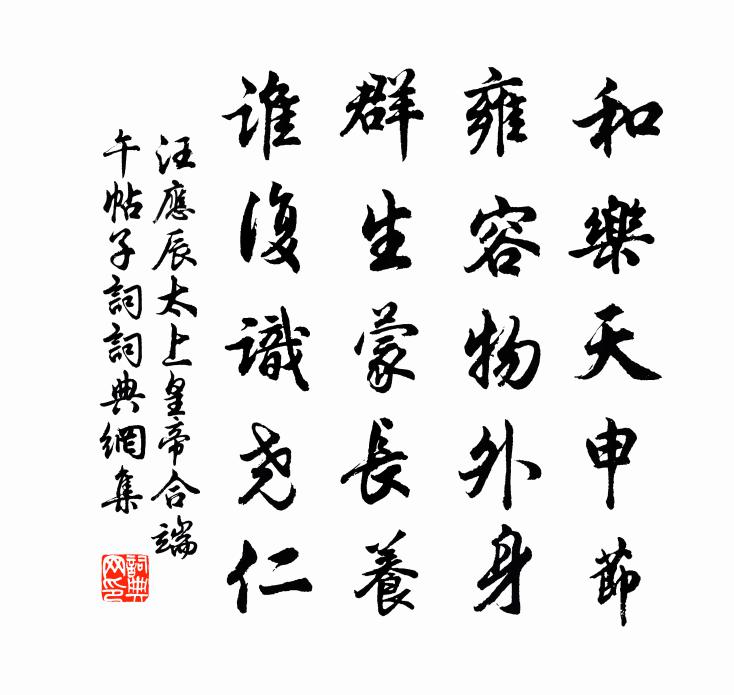 和樂天申節
雍容物外身
群生蒙長養
誰復識尧仁
汪應辰太上皇帝合端
午帖子詞詞典網集
詞典網印